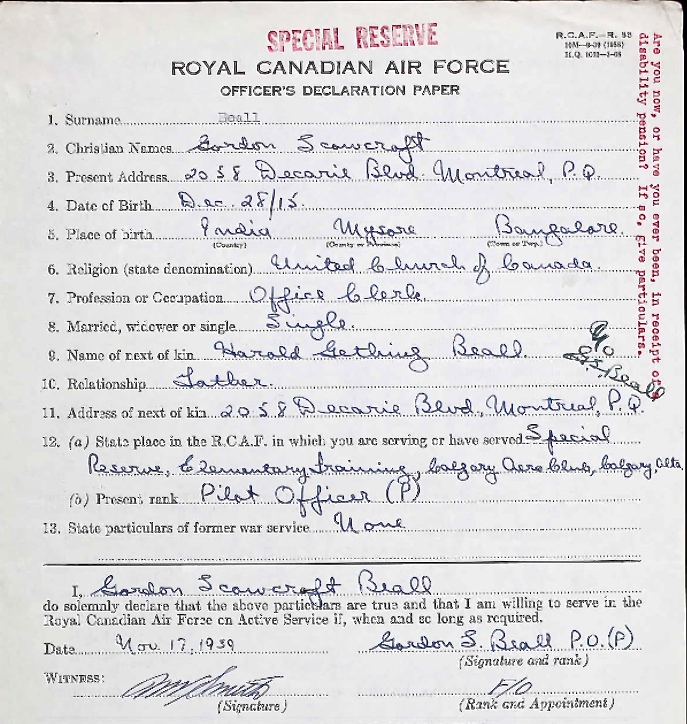 SPECIAL RESERVE
R.C.A.F.—R. 98
ROYAL CANADIAN AIR FORCE
OFFICER'S DECLARATION PAPER
1. Surname Beall
2. Christian Names Gordon Scowcroft
3. Present Address 2058 Decarie Blvd. Montreal, P.Q.
4. Date of Birth Dec. 28/15.
5. Place of birth India Mysore Bangalore.
(Country) (County or Province) (Town or Twp.)
6. Religion (state denomination) United Church of Canada.
7. Profession or Occupation Office Clerk.
8. Married, widower or single Single.
9. Name of next of kin Harold Gething Beall.
10. Relationship Father.
11. Address of next of kin 2058 Decarie Blvd., Montreal, P.Q.
12. (a) State place in the R.C.A.F. in which you are serving or have served Special
Reserve, Elementary Training, Calgary Aero Club, Calgary, Alta.
(b) Present rank Pilot Officer (P)
13. State particulars of former war service None
I, Gordon Scowcroft Beall
do solemnly declare that the above particulars are true and that I am willing to serve in the
Royal Canadian Air Force on Active Service if, when and so long as required.
Date Nov. 17, 1939 Gordon S. Beall P.O.(P)
(Signature and rank)
WITNESS: F/O
(Signature) (Rank and Appointment)
Are you now, or have you ever been, in receipt of a
disability pension? If so, give particulars.
No
G.S. Beall